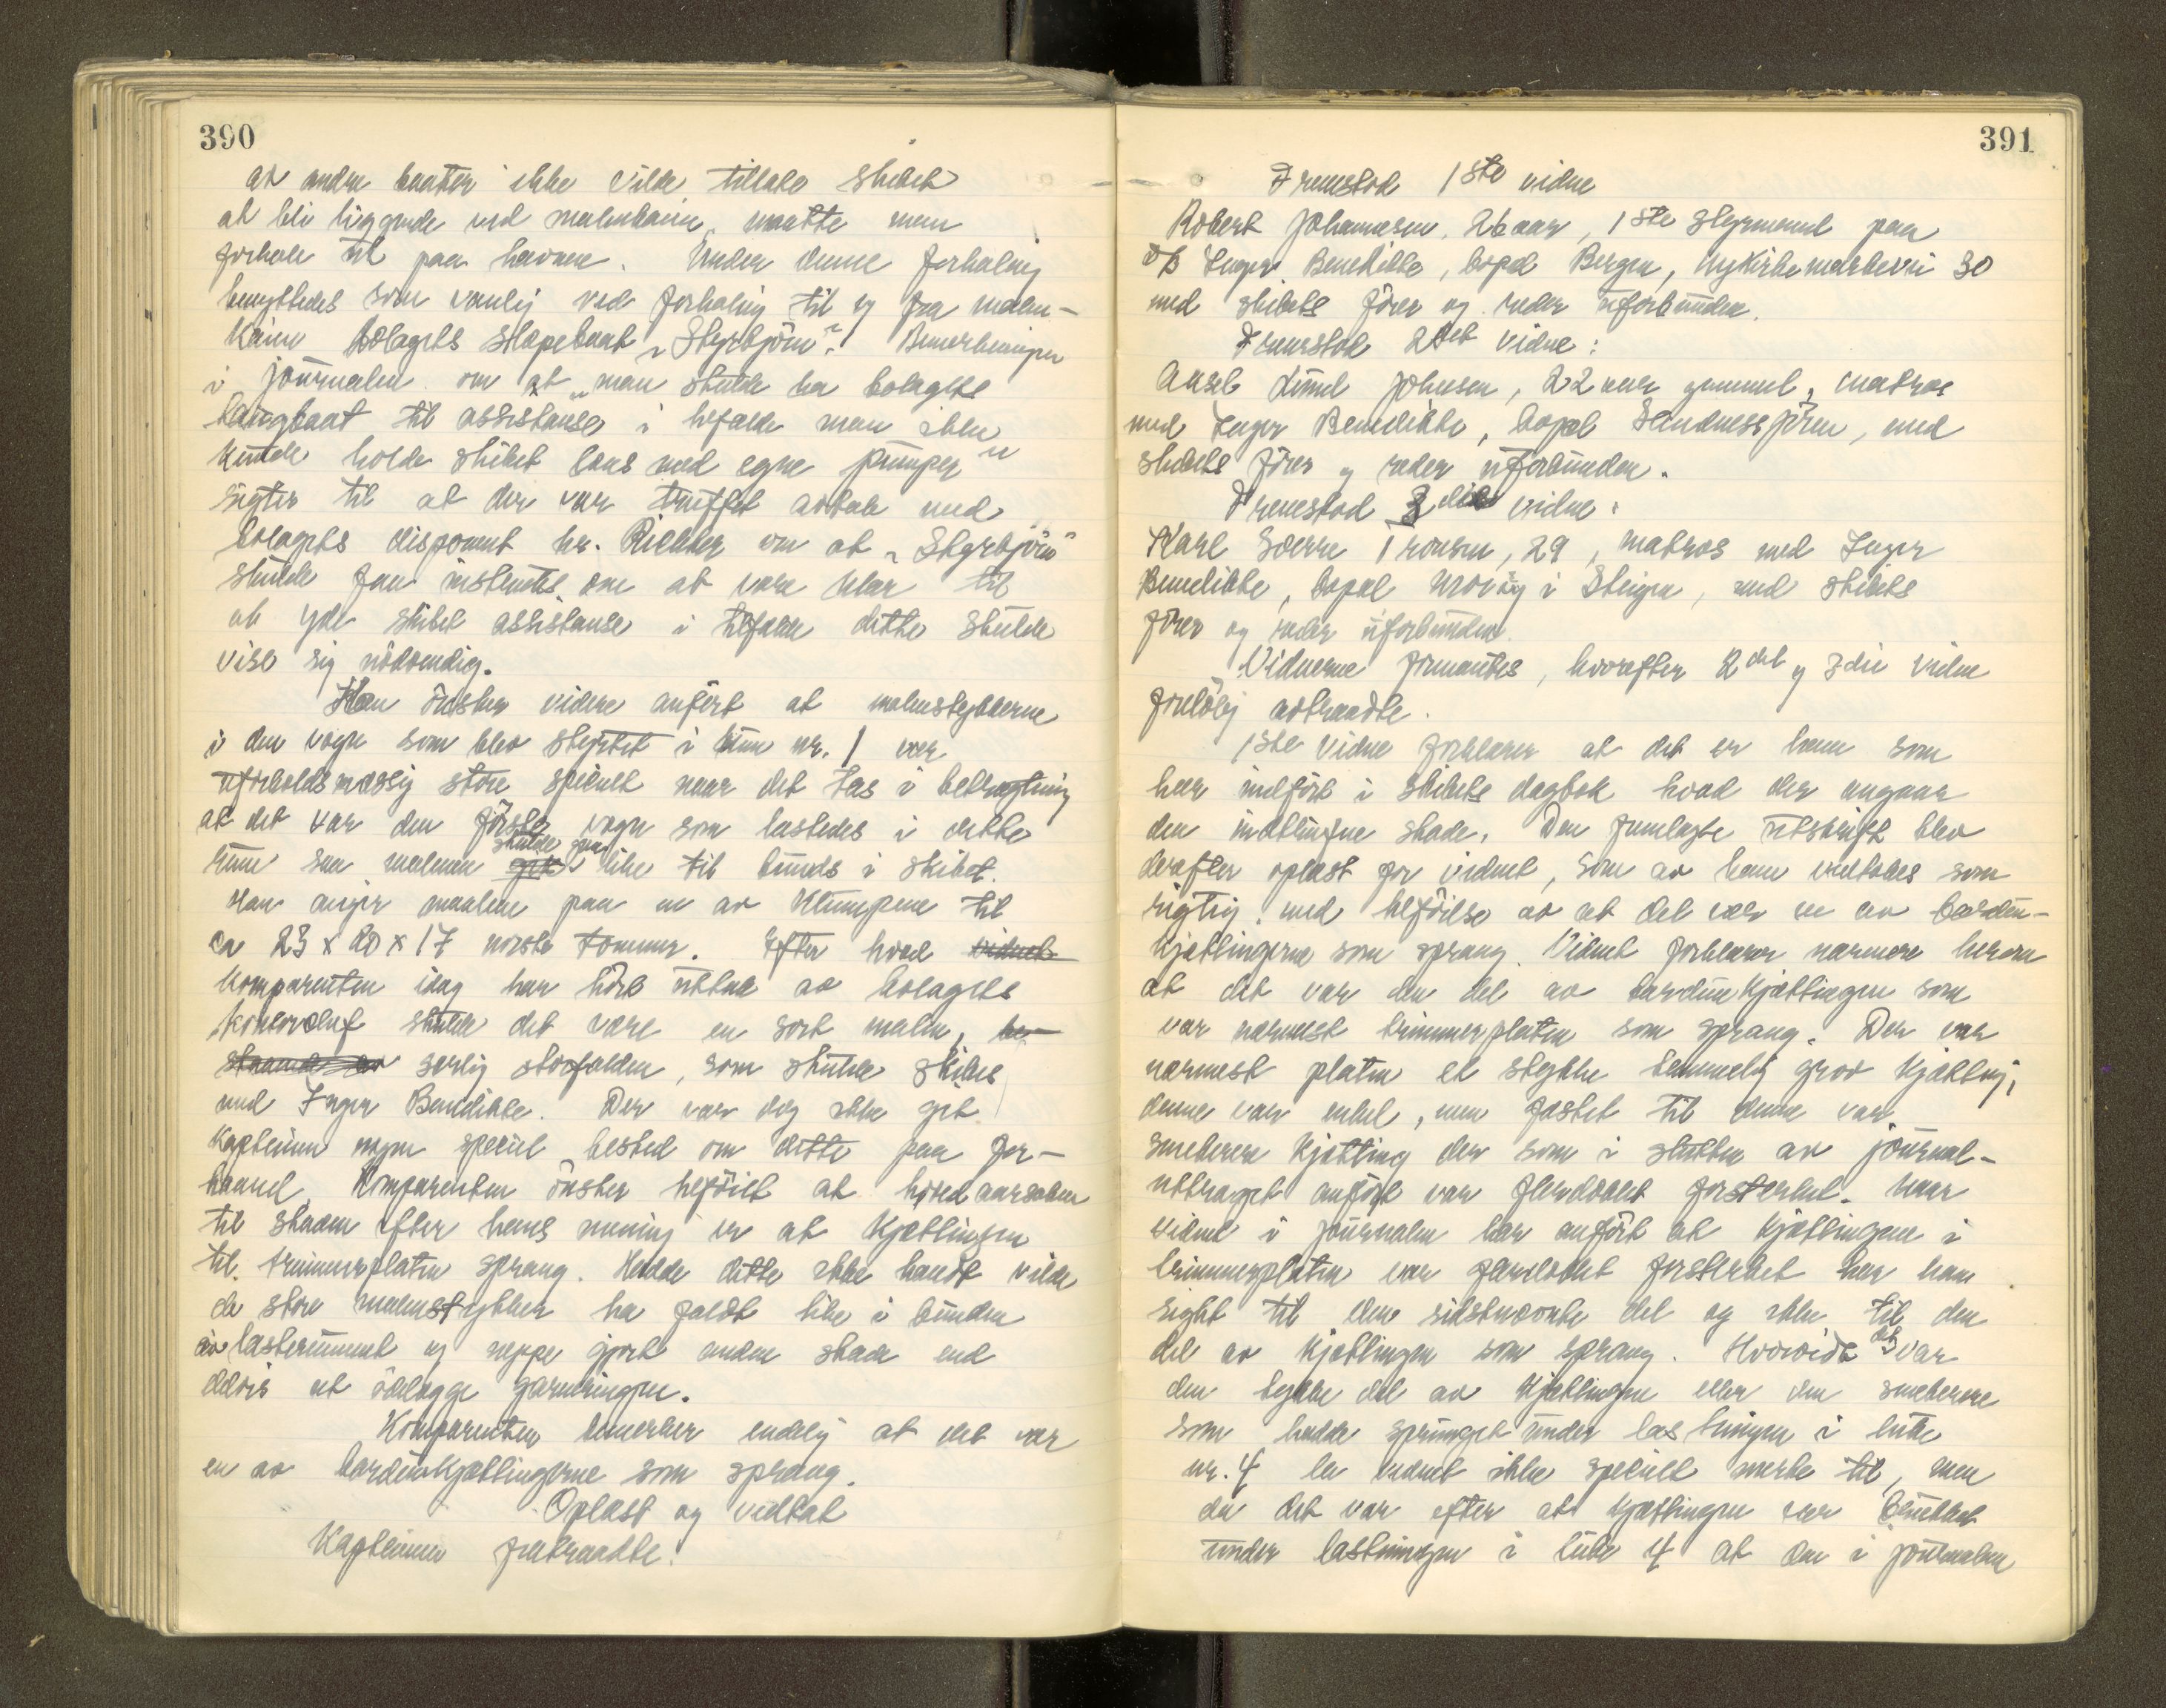 390
at andre baater ikke vilde tillate skibet
at bli liggende ved malmkaien, maatte man
forhale ut paa havnen. Under denne forhaling
benyttedes som vanlig ved forhaling til og fra malm-
kaien bolagets slæpebaat „Styrbjörn". Bemerkningen
i journalen om at „man skulde ha bolagets
baat til assistanse i tilfælde man ikke
kunde holde skibet læns med egne pumper"
sigter til at der var truffet avtale med
bolagets disponent hr. om at „Styrbjörn"
skulde faa instruks om at være klar til
at yde skibet assistanse i tilfælde dette skulde
vise sig nödvendig.
Han önsker videre anfört at malmstykkerne
i den vogn som blev styrtet i rum nr. 1 var
uforholdsmæssig store specielt naar det tas i betragtning
at det var den förste vogn som lastedes i dette
rum saa malmen skulde gaa like til bunds i skibet.
Han angir maalene paa en av klumpene til
ca 23 x 20 x 17 norske tommer. Efter hvad vidnet
komparenten idag har hört uttale av bolagets
skulde det være en sort malm, be-
staaende av serlig storfalden, som skulde skibes
med Inger Benedikte. Der var dog ikke git
kapteinen nogen speciel besked om dette paa for-
haand. Komparenten önsker tilföiet at hovedaarsaken
til skaden efter hans mening er at kjættingen
til trimmerplaten sprang. Hadde dette ikke hændt vilde
de store malmstykker ha faldt like i bunden
av lasterummet og neppe gjort anden skade end
delvis at ödelægge garneringen.
Komparenten bemerker endelig at det var
en av bardunkjættingerne som sprang.
Oplæst og vedtat
Kapteinen fratraadte.
391
Fremstod 1ste vidne
Robert Johannesen, 26 aar, 1ste styrmand paa
D/S Inger Benedikte, bopæl Bergen, Nykirkemarkevei 30
med skibets förer og reder uforbunden.
Fremstod 2det vidne:
Aksel Johnsen, 22 aar gammel, matros
med Inger Benedikte, bopæl Sandnessjöen, med
skibets förer og reder uforbunden.
Fremstod 3die vidne:
Karl Sverre Tronsen, 29, matros med Inger
Benedikte, bopæl i Steigen, med skibets
förer og reder uforbunden.
Vidnerne formantes, hvorefter 2det og 3die vidne
forelöbig avtraadte.
1ste vidne forklarer at det er ham som
har indfört i skibets dagbok hvad der angaar
den indtrufne skade. Den fremlagte utskrift blev
derefter oplæst for vidnet, som av ham vedtokes som
rigtig, med tilföielse av at det var en av bardun-
kjættingerne som sprang. Vidnet forklarer nærmere herom
at det var den del av bardunkjættingen som
var nærmest trimmerplaten som sprang. Der var
nærmest platen et stykke temmelig grov kjætting,
denne var enkel, men fæstet til denne var
smekrere kjætting der som i slutten av journal-
utdraget anfört var flerdobbelt forsterket. Naar
vidnet i journalen har anfört at kjættingen i
trimmerplaten var flerdobbelt forsterket har han
sigtet til den sidstnævnte del og ikke til den
del av kjættingen som sprang. Hvorvidt det var
den tykke del av kjættingen eller den smekrere
som hadde sprunget under lastningen i luke
nr. 4 la vidnet ikke specielt merke til, men
da det var efter at kjættingen var
under lastningen i luke 4 at den i journalen